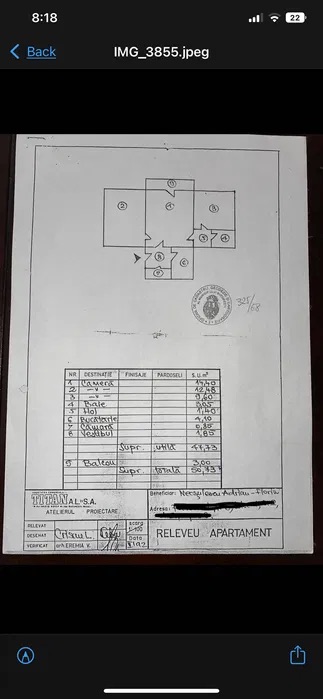 8:18
22
Back
IMG_3855.jpeg
9
2
1
3
5
4
8
6
7
325/68
NR DESTINAȚIE FINISAJE PARDOSELI S.U.m²
1 Cameră 14,40
2 —"— 12,48
3 —"— 9,60
4 Baie 3,05
5 Hol 1,40
6 Bucătărie 4,10
7 Cămară 0,85
8 Vestibul 1,85
Supr. utilă 47,73
9 Balcon 3,00
Supr. totală 50,73
TITAN AL S.A.
ATELIERUL PROIECTARE
Beneficiar:
Adresa:
RELEVAT
DESENAT Crișan L.
VERIFICAT arh. EREMIA V.
scara
1:100
Data
RELEVEU APARTAMENT